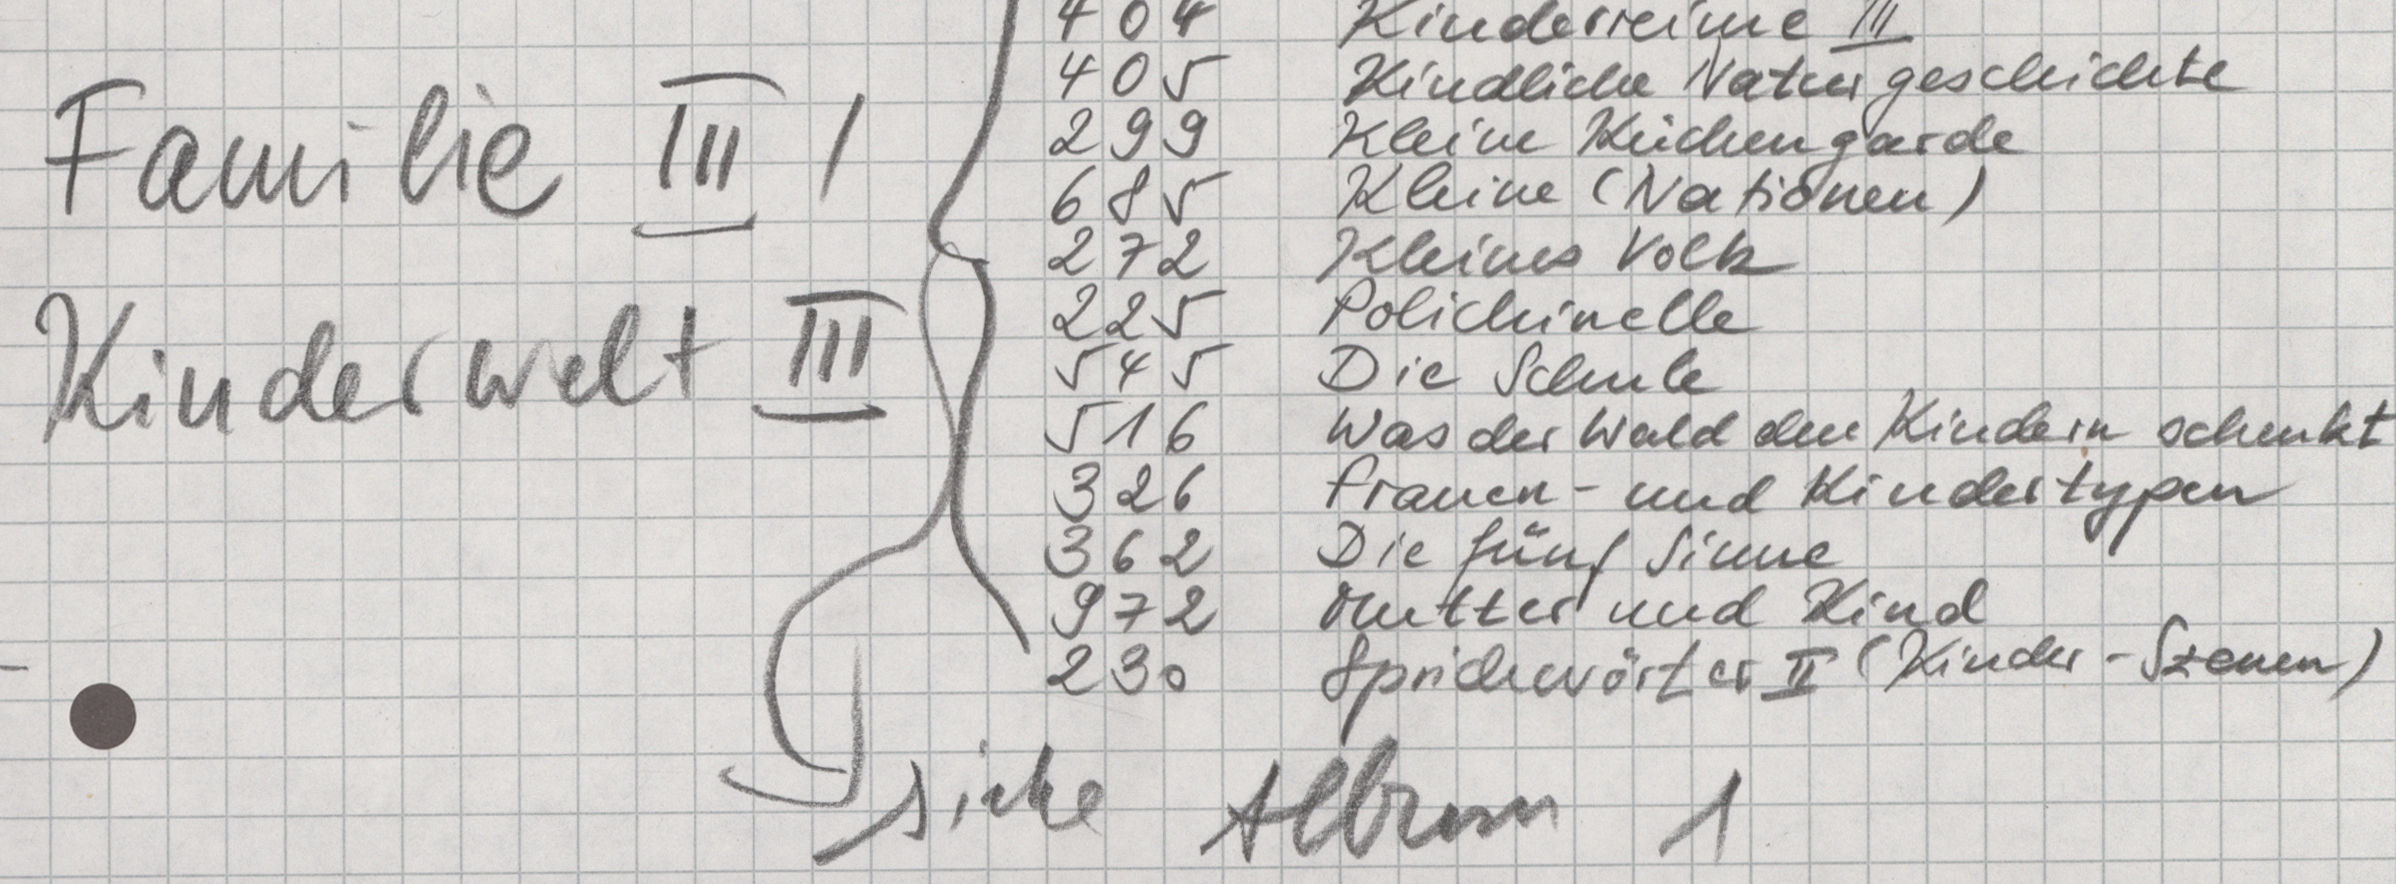 404 Kinderreime III
405 Kindliche Naturgeschichte
299 Kleine Küchengarde
685 Kleine (Nationen)
272 Kleines Volk
225 Polichinelle
545 Die Schule
516 Was der Wald den Kindern schenkt
326 Frauen- und Kindertypen
362 Die fünf Sinne
972 Mutter und Kind
230 Sprichwörter II (Kinder-Szenen)
Familie III /
Kinderwelt III
siehe Album 1